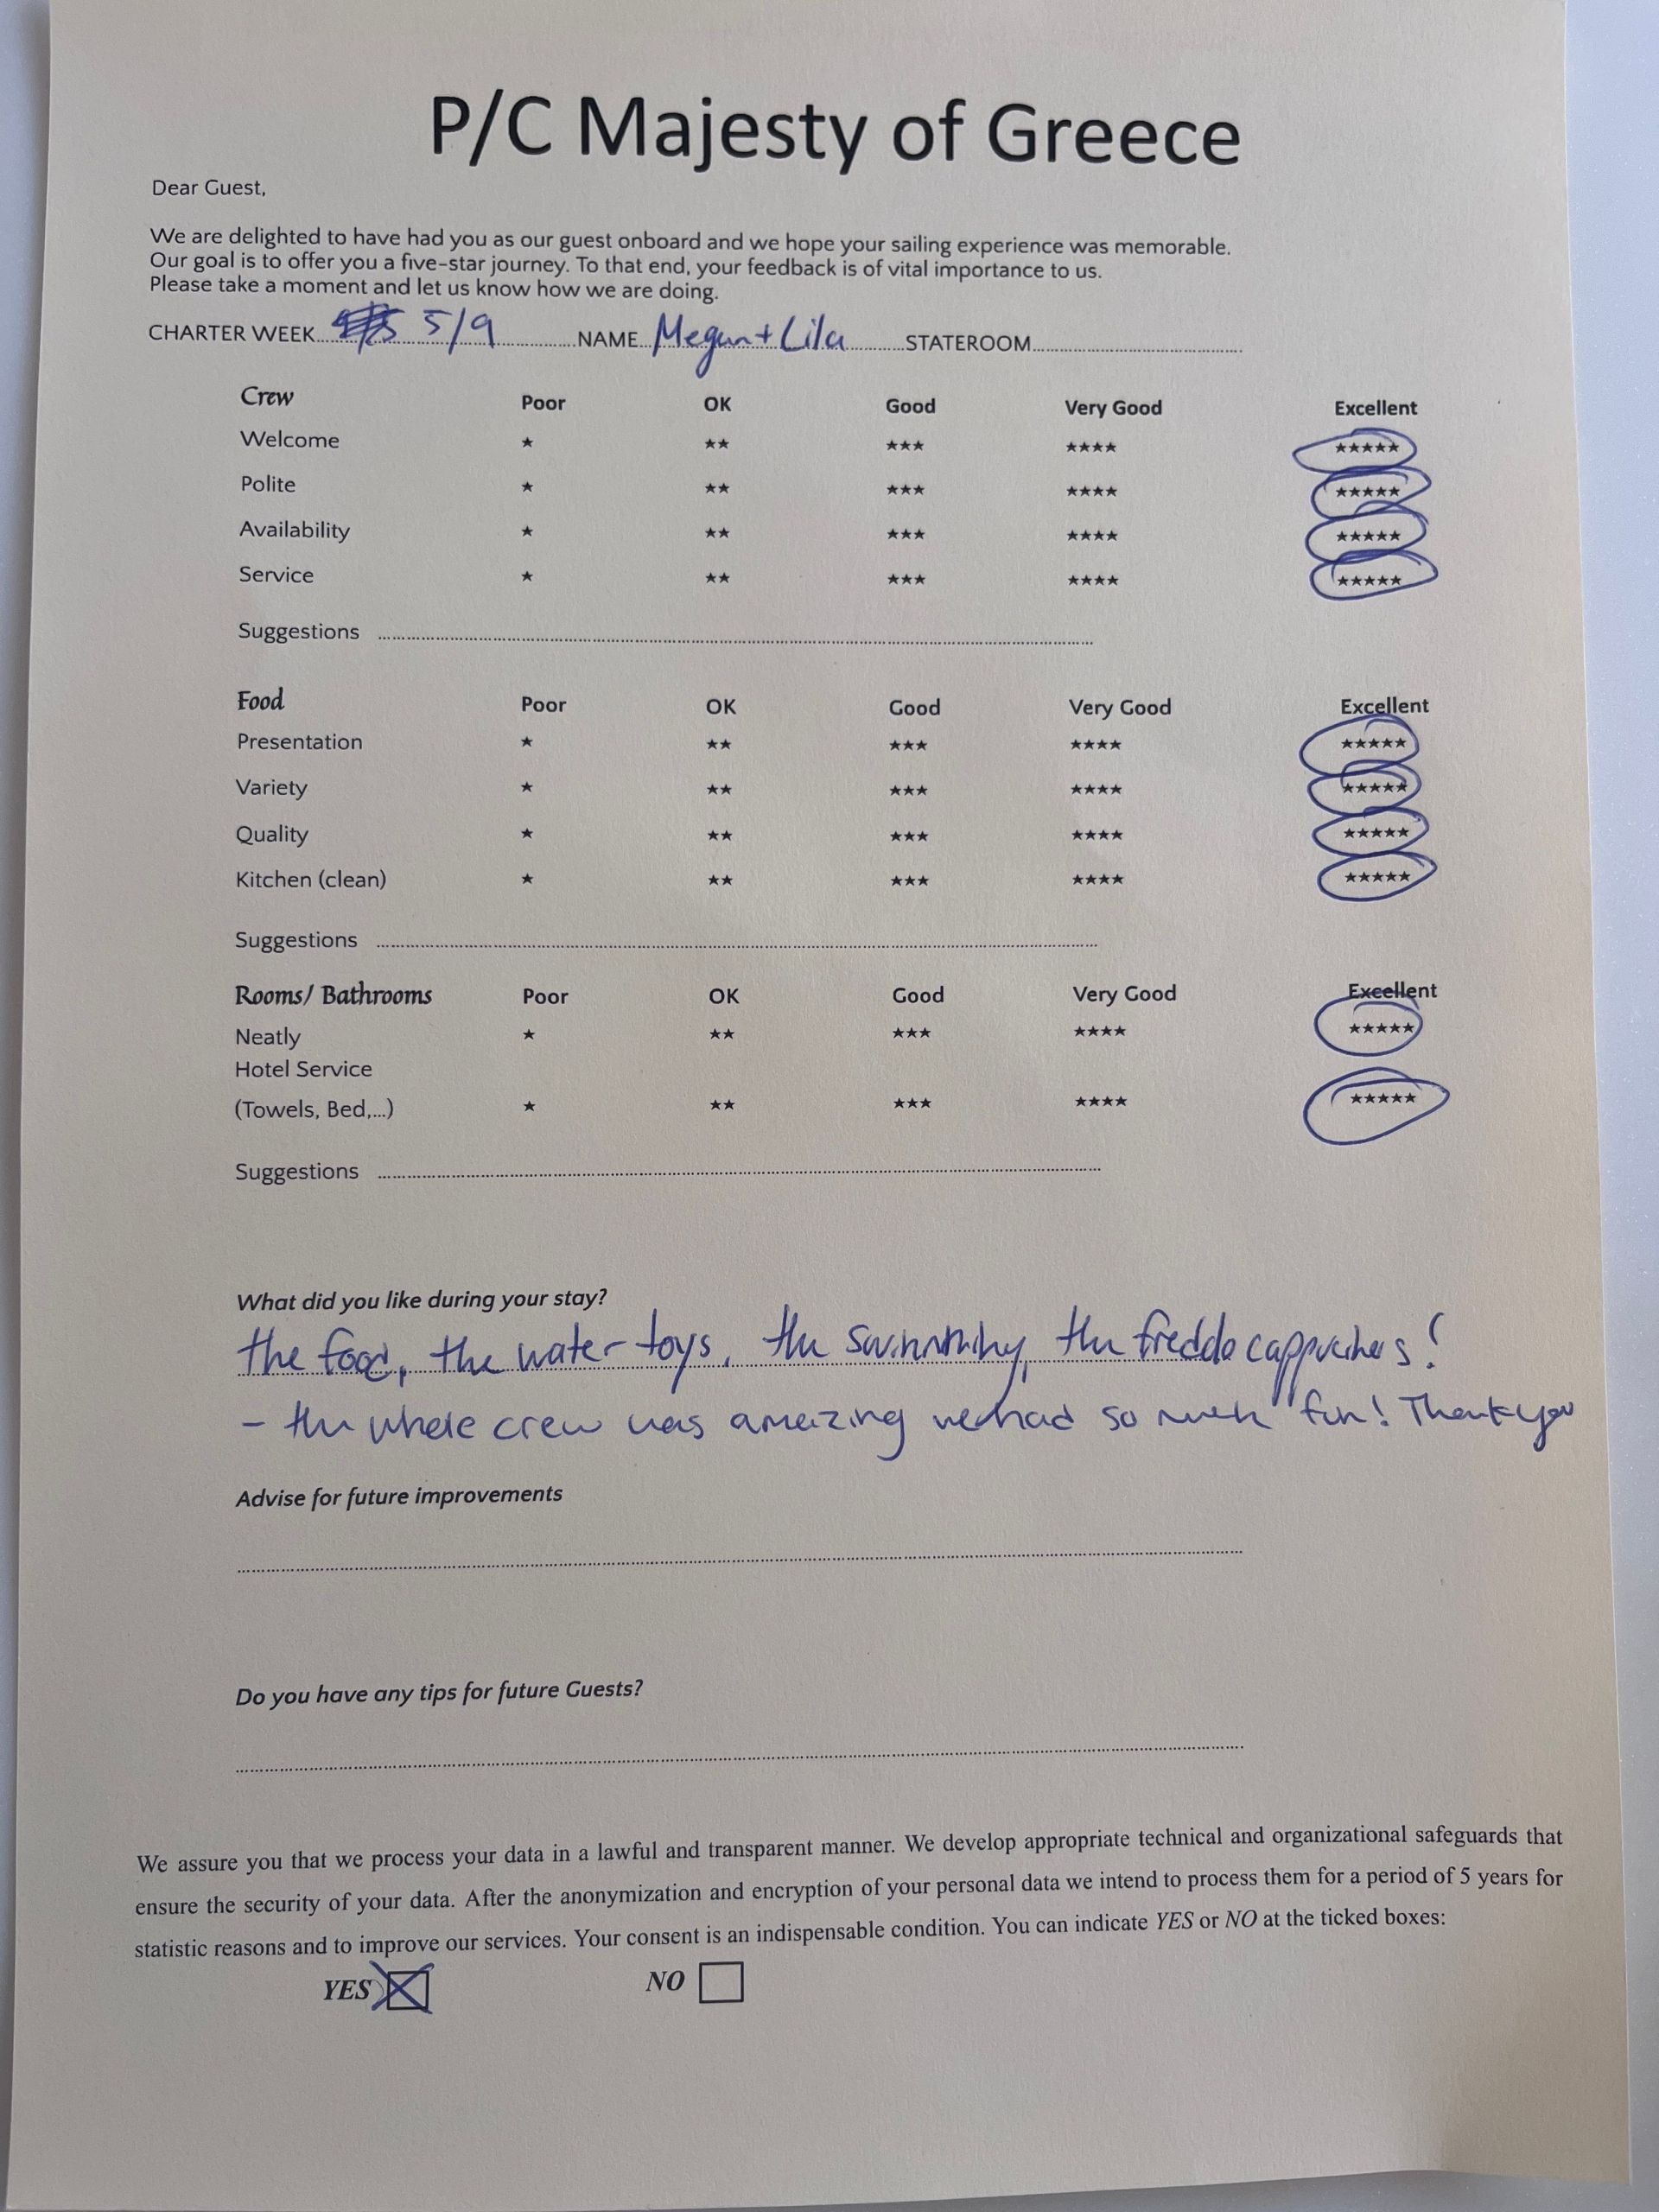 P/C Majesty of Greece
Dear Guest,
We are delighted to have had you as our guest onboard and we hope your sailing experience was memorable.
Our goal is to offer you a five-star journey. To that end, your feedback is of vital importance to us.
Please take a moment and let us know how we are doing.
CHARTER WEEK 5/9 NAME Megan + Lila STATEROOM
Crew Poor OK Good Very Good Excellent
Welcome ★ ★★ ★★★ ★★★★ ★★★★★
Polite ★ ★★ ★★★ ★★★★ ★★★★★
Availability ★ ★★ ★★★ ★★★★ ★★★★★
Service ★ ★★ ★★★ ★★★★ ★★★★★
Suggestions
Food Poor OK Good Very Good Excellent
Presentation ★ ★★ ★★★ ★★★★ ★★★★★
Variety ★ ★★ ★★★ ★★★★ ★★★★★
Quality ★ ★★ ★★★ ★★★★ ★★★★★
Kitchen (clean) ★ ★★ ★★★ ★★★★ ★★★★★
Suggestions
Rooms/ Bathrooms Poor OK Good Very Good Excellent
Neatly ★ ★★ ★★★ ★★★★ ★★★★★
Hotel Service
(Towels, Bed,...) ★ ★★ ★★★ ★★★★ ★★★★★
Suggestions
What did you like during your stay?
the food, the water toys, the swimming, the freddo cappucinos!
- the whole crew was amazing we had so much fun! Thank you
Advise for future improvements
Do you have any tips for future Guests?
We assure you that we process your data in a lawful and transparent manner. We develop appropriate technical and organizational safeguards that
ensure the security of your data. After the anonymization and encryption of your personal data we intend to process them for a period of 5 years for
statistic reasons and to improve our services. Your consent is an indispensable condition. You can indicate YES or NO at the ticked boxes:
YES NO